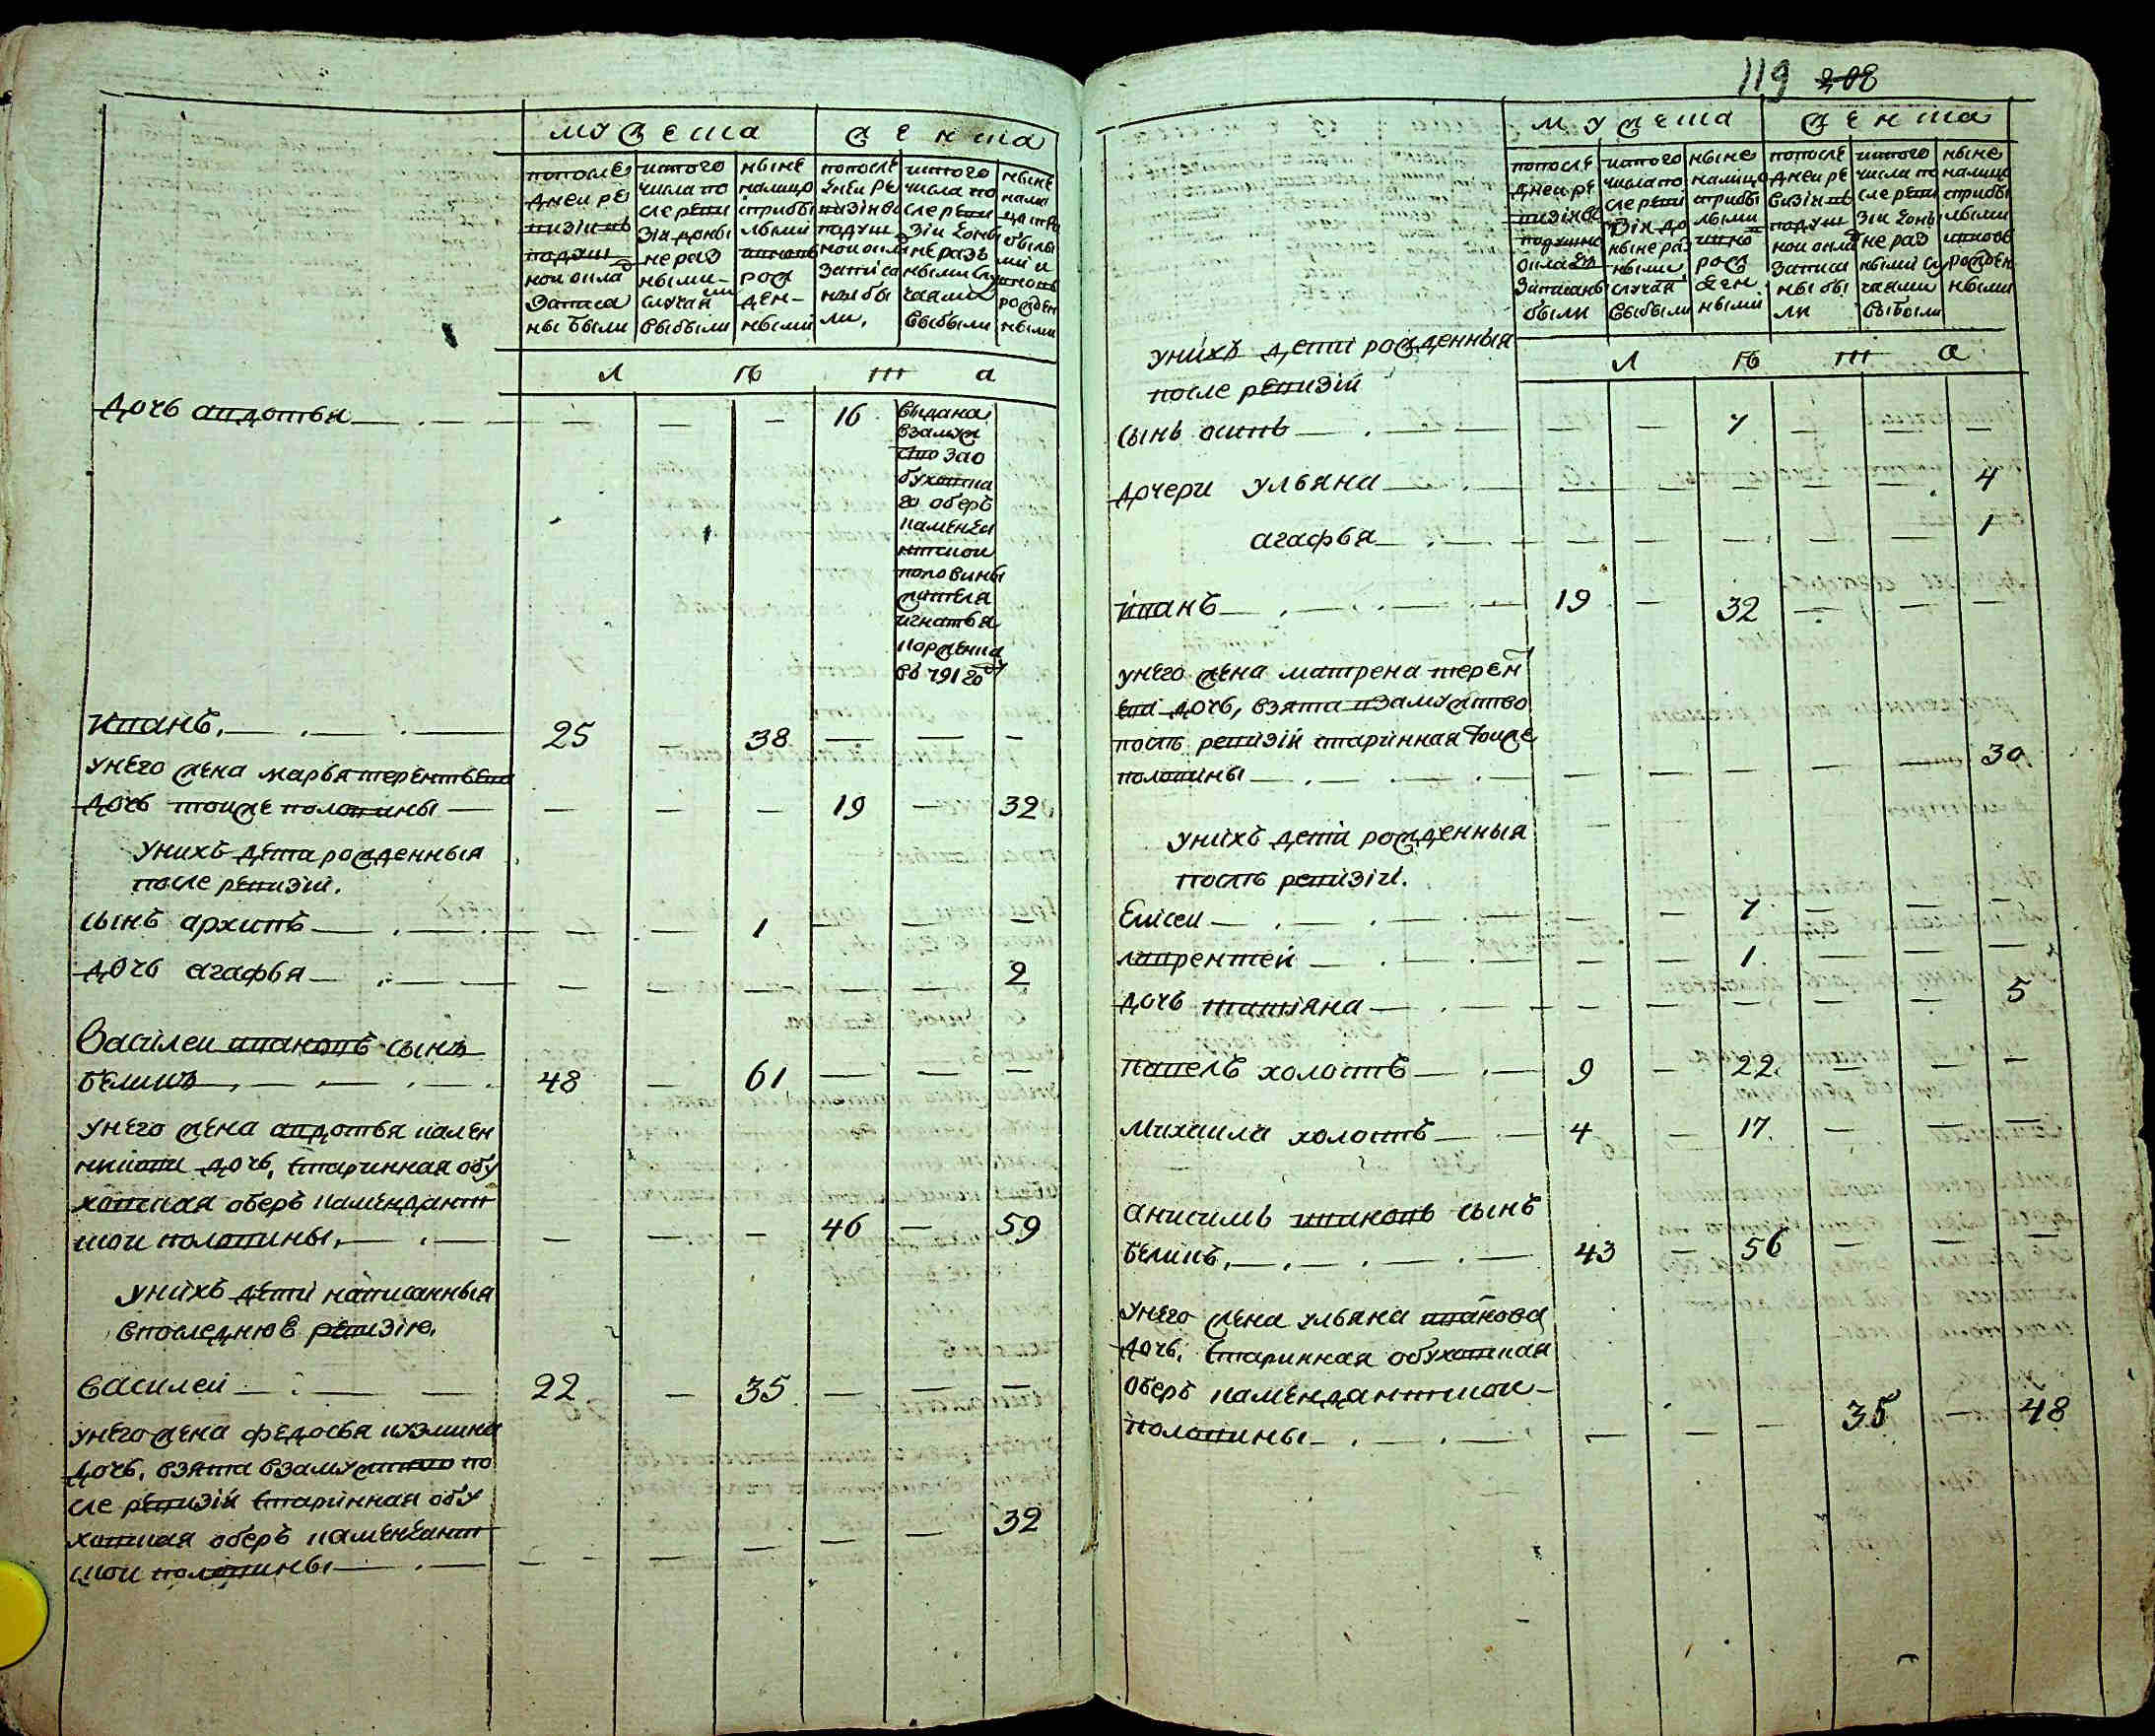 мужеска
женска
попосле
дней ре
визии въ
подуш
ной окла
записа
ны были
ис того
числа по
сле реви
зии доны
не раз
ными
случаи
выбыли
ныне
налицо
с прибы
лыми
и вновь
рож
ден-
ными
попосле
дней ре
визии въ
подуш
ной окла
записа
ны бы
ли.
ис того
числа по
сле реви
зии доны
не разъ
ными слу
чаями
выбыли
ныне
нали
цо с при
былы
ми и
вновь
рожден
ными
л ѣ т а
дочь авдотья 16
выдана
взамуж
ство за о
буховска
го оберъ
каменда
нтской
половины
жителя
игнатья
в 791 году
иванъ. 25 38
унего жена марья терентьева
дочь тойже половины 19 32.
унихъ дета рожденныя
после ревизии.
сынъ архипъ 1
дочь агафья 2
Василей ивановъ сынъ
белинъ 48 61
унего жена авдотья
дочь, старинная обу
ховская оберъ каменданит
ской половины, 46 59
унихъ дети написанныя
впоследнюю ревизию.
василей 22 35
унего жена федосья кузмина
дочь, взята взамужство по
сле ревизии старинная обу
ховская оберъ каменданит
ской половины 32
119 208
мужеска
женска
попосле
дней ре
визии въ
подушно
окла
записаны
были
ис того
числа по
сле реви
зии до
ныне раз
ными
случая
выбыли
ныне
налицо
с прибы
лыми
и вно
рож
ден
ными
попосле
дней ре
визии въ
подуш
ной окла
записа
ны бы
ли
ис того
числа по
сле реви
зии доны
не раз
ными слу
чаями
выбыли
ныне
налицо
с прибы
лыми
и вновь
рожден
ными
л ѣ т а
унихъ дети рожденныя
после ревизии
сынъ осипъ 7
дочери ульяна 4
агафья 1
иванъ 19 32
унего жена матрена терен
ева дочь, взята взамужство
послѣ ревизии старинная тойже
половины 30
унихъ дети рожденныя
послѣ ревизии.
Елисей 7
лаврентей 1.
дочь татияна 5
павелъ холостъ 9 22.
михаила холостъ 4 17.
анисимъ ивановъ сынъ
белинъ, 43 56
унего жена ульяна иванова
дочь, старинная обуховская
оберъ каменданитской
половины 35 48